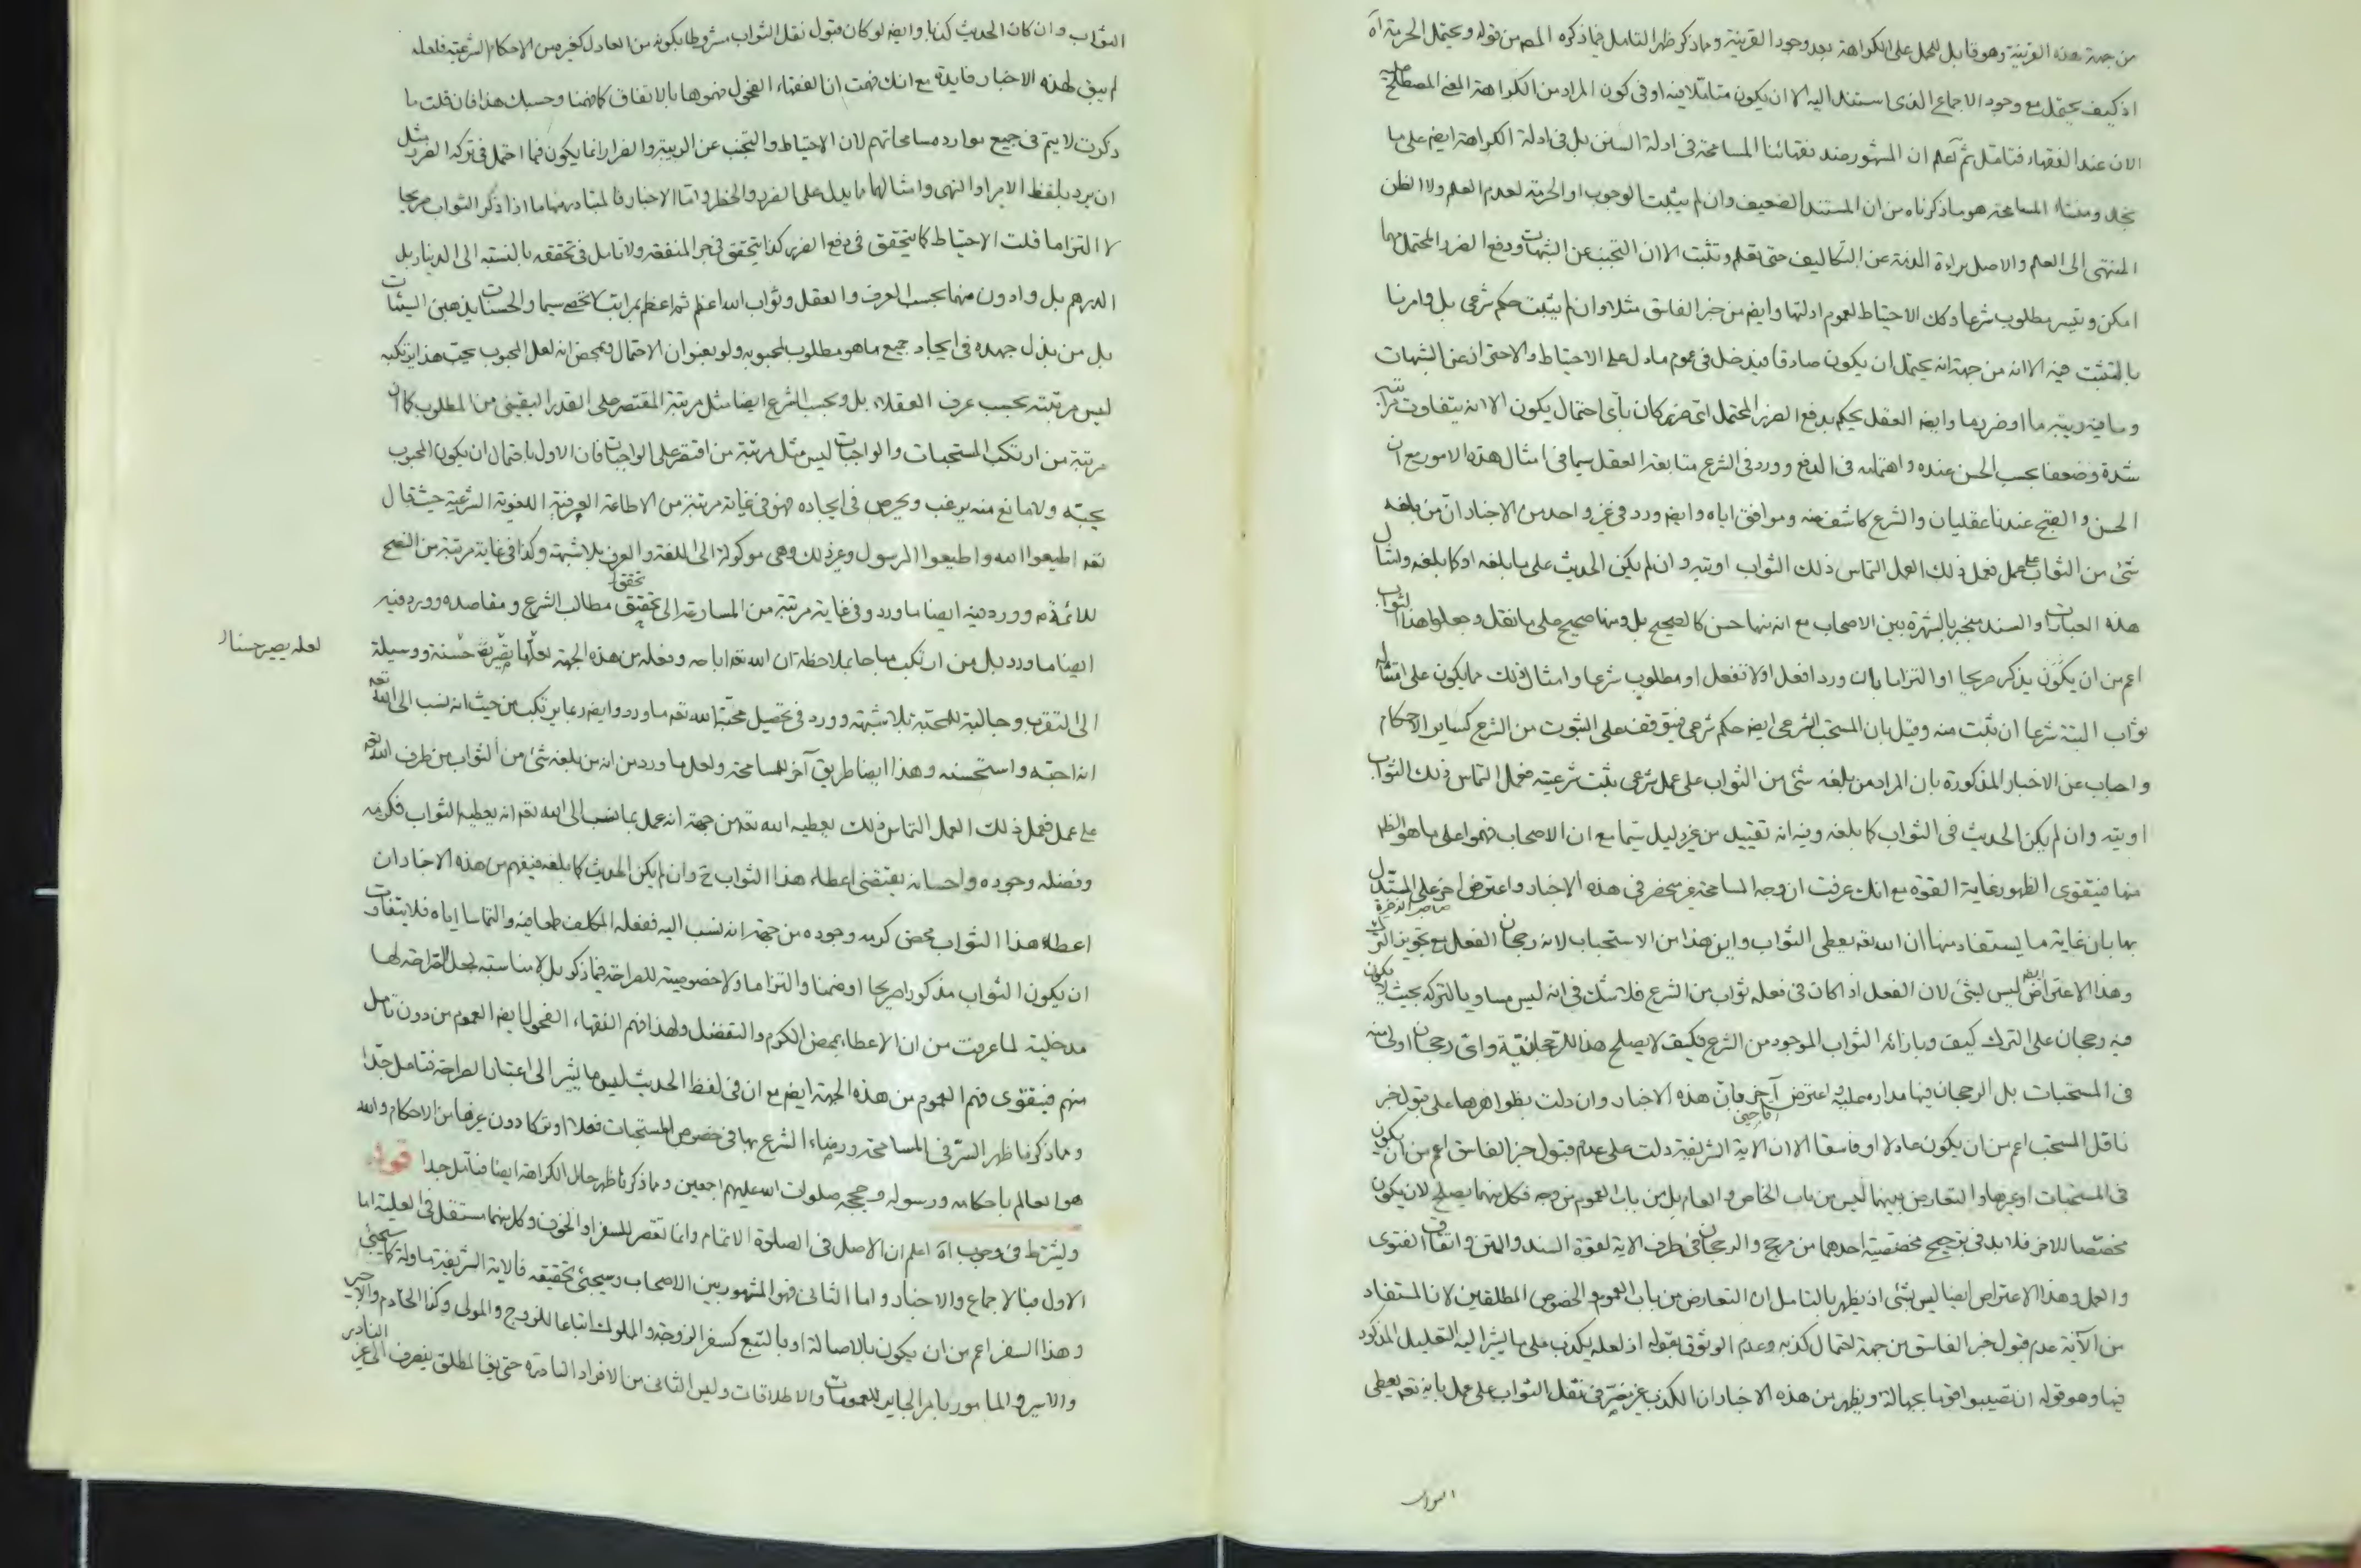 من جهة هذه القرينة وهو قابل للحمل على الكراهة بعد وجود القرينة وماذكر ظهر التامل فيما ذكره المص من قوله ويحتمل الحرمة آه
اذ كيف يحتمل مع وجود الاجماع الذى استند اليه الا ان يكون متاملا فيه او فى كون المراد من الكراهة المعنى المصطلح عليه
الان عند الفقهاء فتامل ثم آعلم ان المشهور عند فقهائنا المسامحة فى ادلة السنن بل فى ادلة الكراهة ايضم على ما
نجد ومنشاء المسامحة هو ما ذكرناه من ان المستند الضعيف وان لم يثبت الوجوب او الحرمة لعدم العلم ولا الظن
المنتهى الى العلم والاصل براءة الذمة عن التكاليف حتى تعلم وتثبت الا ان التجنب عن الشبهات ودفع الضرر المحتمل مهما
امكن وتيسر مطلوب شرعا وكك الاحتياط لعموم ادلتها وايضم من خبر الفاسق مثلا وان لم يثبت حكم شرعى بل وامرنا
بالتثبت فيه الا انه من جهة انه يحتمل ان يكون صادقا فيدخل فى عموم مادل على الاحتياط والاحتراز عن الشبهات
وما فيه ريبة ما او ضرر ما وايضم العقل يحكم بدفع الضرر المحتمل اى ضرر كان باى احتمال يكون الا انه يتفاوت مراتبه
شدة وضعفا بحسب الحسن عنده واهتمامه فى الدفع وورد فى الشرع متابعة العقل سيما فى امثال هذه الامور مع ان
الحسن والقبح عندنا عقليان والشرع كاشف عنه وموافق اياه وايضم ورد فى غير واحد من الاخبار ان من بلغه
شئ من الثواب على عمل فعمل ذلك العمل التماس ذلك الثواب اوتيه وان لم يكن الحديث على ما بلغه او كما بلغه وامثال
هذه العبارات والسند منجبر بالشهرة بين الاصحاب مع انه منها حسن كالصحيح بل ومنها صحيح على ما نقل وجعلوا هذا الثواب
اعم من ان يكون يذكر صريحا او التزاما بان ورد افعل او لا تفعل او مطلوب شرعا وامثال ذلك مما يكون على امتثاله
ثواب البتة شرعا ان ثبت منه وقيل بان المستحب الشرعى ايضم حكم شرعى فيتوقف على الثبوت من الشرع كساير الاحكام
واجاب عن الاخبار المذكورة بان المراد من بلغه شئ من الثواب على عمل شرعى يثبت شرعيته فعمل التماس ذلك الثواب
اوتيه وان لم يكن الحديث فى الثواب كما بلغه وفيه انه تقييد من غير دليل سيما مع ان الاصحاب فهموا على ما هو الظم
منها فيتقوى الظهور غاية القوة مع انك عرفت ان وجه المسامحة غير منحصر فى هذه الاخبار واعترض اخر على المستدل
صاحب الذخيرة
بها بان غاية ما يستفاد منها ان الله تعم يعطى الثواب واين هذا من الاستحباب لانه رجحان الفعل مع تجويز الترك
وهذا الاعتراض ايضم ليس بشئ لان الفعل اذا كان فى فعله ثواب من الشرع فلا شك فى انه ليس مساويا بالترك بحيث لا يكون
فيه رجحان على الترك كيف وبازائه الثواب الموجود من الشرع فكيف لا يصلح هذا للرجحانية واى رجحان اولى منه
فى المستحبات بل الرجحان فيها مداره عليه اعترض آخر بان هذه الاخبار وان دلت بظواهرها على قبول خبر
ناقل المستحب اعم من ان يكون عادلا او فاسقا الا ان الاية الشريفة دلت على عدم قبول خبر الفاسق اعم من ان يكون
فى المستحبات او غيرها والتعارض بينهما ليس من باب الخاص والعام بل من باب العموم من وجه فكل منهما يصلح لان يكون
مخصصا للاخر فلا بد فى ترجيح مخصصية احدهما من مرجح والرجحان فى طرف الاية لقوة السند والمتن واتفاق الفتوى
والعمل وهذا الاعتراض ايضا ليس بشئ اذ يظهر بالتامل ان التعارض من باب العموم والخصوص المطلقين لان المستفاد
من الآية عدم قبول خبر الفاسق من جهة احتمال كذبه وعدم الوثوق بقوله اذ لعله يكذب على ما يشير اليه التعليل المذكور
فيها وهو قوله ان تصيبوا قوما بجهالة ويظهر من هذه الاخبار ان الكذب غير مضر فى نقل الثواب على عمل بانه تعم يعطى
الثواب
الثواب وان كان الحديث كذبا وايضم لو كان قبول نقل الثواب مشروطا بكونه من العادل كغيره من الاحكام الشرعية فلعله
لم يبق لهذه الاخبار فايدة مع انك فهمت ان الفقهاء الفحول فهموها بالاتفاق كما فهمنا وحسبك هذا فان قلت ما
ذكرت لا يتم فى جميع موارد مسامحاتهم لان الاحتياط والتجنب عن الريبة والضرر انما يكون فيما احتمل فى تركه الضرر مثل
ان يرد بلفظ الامر او النهى وامثالهما مما يدل على الضرر والخطر واما الاخبار فالمتبادر منها ما اذا ذكر الثواب صريحا
لا التزاما قلت الاحتياط كما يتحقق فى دفع الضرر كذا يتحقق فى جر المنفعة ولا تامل فى تحققه بالنسبة الى الدينار بل
الدرهم بل وادون منهما بحسب العرف والعقل وثواب الله اعظم ثم اعظم بمراتب لا تحصى سيما والحسنات يذهبن السيئات
بل من بذل جهده فى ايجاد جميع ما هو مطلوب لمحبوبه ولو بعنوان الاحتمال وبمحض انه لعل المحبوب يحب هذا يرتكبه
ليس مرتبته بحسب عرف العقلاء بل وبحسب الشرع ايضا مثل مرتبة المقتصر على القدر اليقينى من المطلوب كما ان
مرتبة من ارتكب المستحبات والواجبات ليس مثل مرتبة من اقتصر على الواجبات فان الاول باحتمال ان يكون المحبوب
يحبه ولا مانع منه يرغب ويحرص فى ايجاده فهو فى غاية مرتبة من الاطاعة العرفية اللغوية الشرعية حيث قال
تعم اطيعوا الله واطيعوا الرسول وغير ذلك وهى موكولة الى اللغة والعرف بلا شبهة وكذا فى غاية مرتبة من النصح
للائمة م وورد فيه ايضا ما ورد وفى غاية مرتبة من المسارعة الى تحقيق مطالب الشرع ومقاصده وورد فيه
تحقق
ايضا ما ورد بل من ارتكب مباحا بملاحظة ان الله تعم اباحه وفعله من هذه الجهة لعلها تصير حسنة ووسيلة
لعله يصير حسنا
الى التقرب وجالبة للمحبة بلا شبهة وورد فى تحصيل محبة الله تعم ما ورد وايضم ربما يرتكب من حيث انه نسب الى الله تعم
انه احبه واستحسنه وهذا ايضا طريق آخر للمسامحة ولعل ما ورد من انه من بلغه شئ من الثواب من طرف الله تعم
على عمل فعمل ذلك العمل التماس ذلك يعطيه الله تعم من جهة انه عمل بما نسب الى الله تعم انه يعطيه الثواب فكرمه
وفضله وجوده واحسانه يقتضى اعطاء هذا الثواب ح وان لم يكن الحديث كما بلغه فيفهم من هذه الاخبار ان
اعطاء هذا الثواب محض كرمه وجوده من جهة انه نسب اليه ففعله المكلف طمعا فيه والتماسا اياه فلا يتفاوت
ان يكون الثواب مذكورا صريحا او ضمنا والتزاما ولا خصوصية للصراحة فيما ذكر بل لا مناسبة لجعل الصراحة لها
مدخلية لما عرفت من ان الاعطاء بمحض الكرم والتفضل ولهذا فهم الفقهاء الفحول ايضم العموم من دون تامل
منهم فيتقوى فهم العموم من هذه الجهة ايضم مع ان فى لفظ الحديث ليس ما يشير الى اعتبار الصراحة فتامل جدا
ومما ذكرنا ظهر السر فى المسامحة ورضاء الشرع بها فى خصوص المستحبات فعلا او تركا دون غيرها من الاحكام والله
هو العالم باحكامه ورسوله وحججه صلوات الله عليهم اجمعين ومما ذكرنا ظهر حال الكراهة ايضا فتامل جدا قوله
ويشترط فى وجوب آه اعلم ان الاصل فى الصلوة الاتمام وانما تقصر للسفر او الخوف وكل منهما مستقل فى العلية اما
الاول فبالاجماع والاخبار واما الثانى فهو المشهور بين الاصحاب وسيجئ تحقيقه فالاية الشريفة ماولة كما سيجئ
وهذا السفر اعم من ان يكون بالاصالة او بالتبع كسفر الزوجة والمملوك اتباعا للزوج والمولى وكذا الخادم والاجير
والاسير والمامور بامر الجاير للعمومات والاطلاقات وليس الثانى من الافراد النادرة حتى يق المطلق ينصرف الى غير النادر